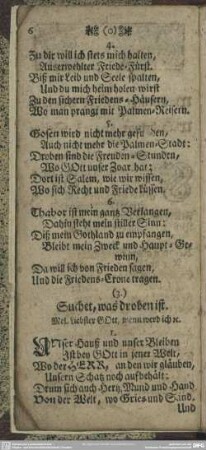 6 (o)
4.
Zu dir will ich stets mich halten,
Auserwehlter Friede-Fürst.
Biß mir Leib und Seele spalten,
Und du mich heim holen wirst
Zu den sichern Friedens-Häusern,
Wo man prangt mit Palmen-Reisern.
5.
Gosen wird nicht mehr gefunden,
Auch nicht mehr die Palmen-Stadt:
Droben sind die Freuden-Stunden,
Wo GOtt unser Zoar hat:
Dort ist Salem, wie wir wissen,
Wo sich Recht und Friede küssen.
6.
Thabor ist mein gantz Verlangen,
Dahin steht mein stiller Sinn:
Diß mein Gothland zu empfangen,
Bleibt mein Zweck und Haupt-Ge-
winn,
Da will ich von Frieden sagen,
Und die Friedens-Crone tragen.
(3.)
Suchet, was droben ist.
Mel. liebster GOtt, wenn werd ich ꝛc.
1.
Unser Hauß und unser Bleiben
Ist bey GOtt in jener Welt,
Wo der HERR, an den wir gläuben,
Unsern Schatz noch aufbehält:
Drum sich auch Hertz, Mund und Hand
Von der Welt, wo Gries und Sand.
Und